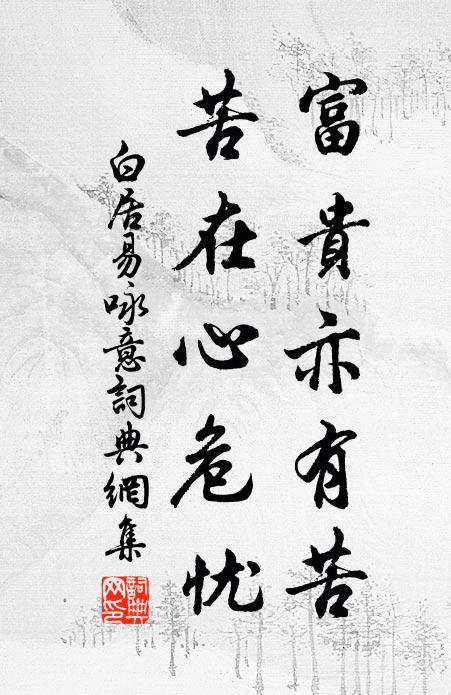 富貴亦有苦
苦在心危忧
白居易咏意詞典網集
詞典网印